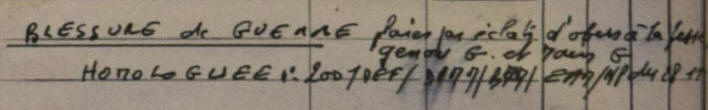 BLESSURE de GUERRE plaies par éclats d'obus à la fesse
genou G. et main G
HOMOLOGUEE n° 2001/DEF/